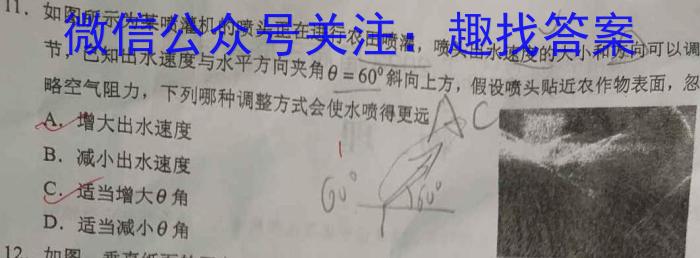 11. 如图所示为某喷灌机的喷头正在进行农田喷灌，喷头出水速度的大小和方向可以调
微信公众号关注：趣找答案
节，已知出水速度与水平方向夹角θ=60°斜向上方，假设喷头贴近农作物表面，忽
略空气阻力，下列哪种调整方式会使水喷得更远 AC
A. 增大出水速度
B. 减小出水速度
C. 适当增大θ角
D. 适当减小θ角
60° 60°
12. 如图，垂直纸面